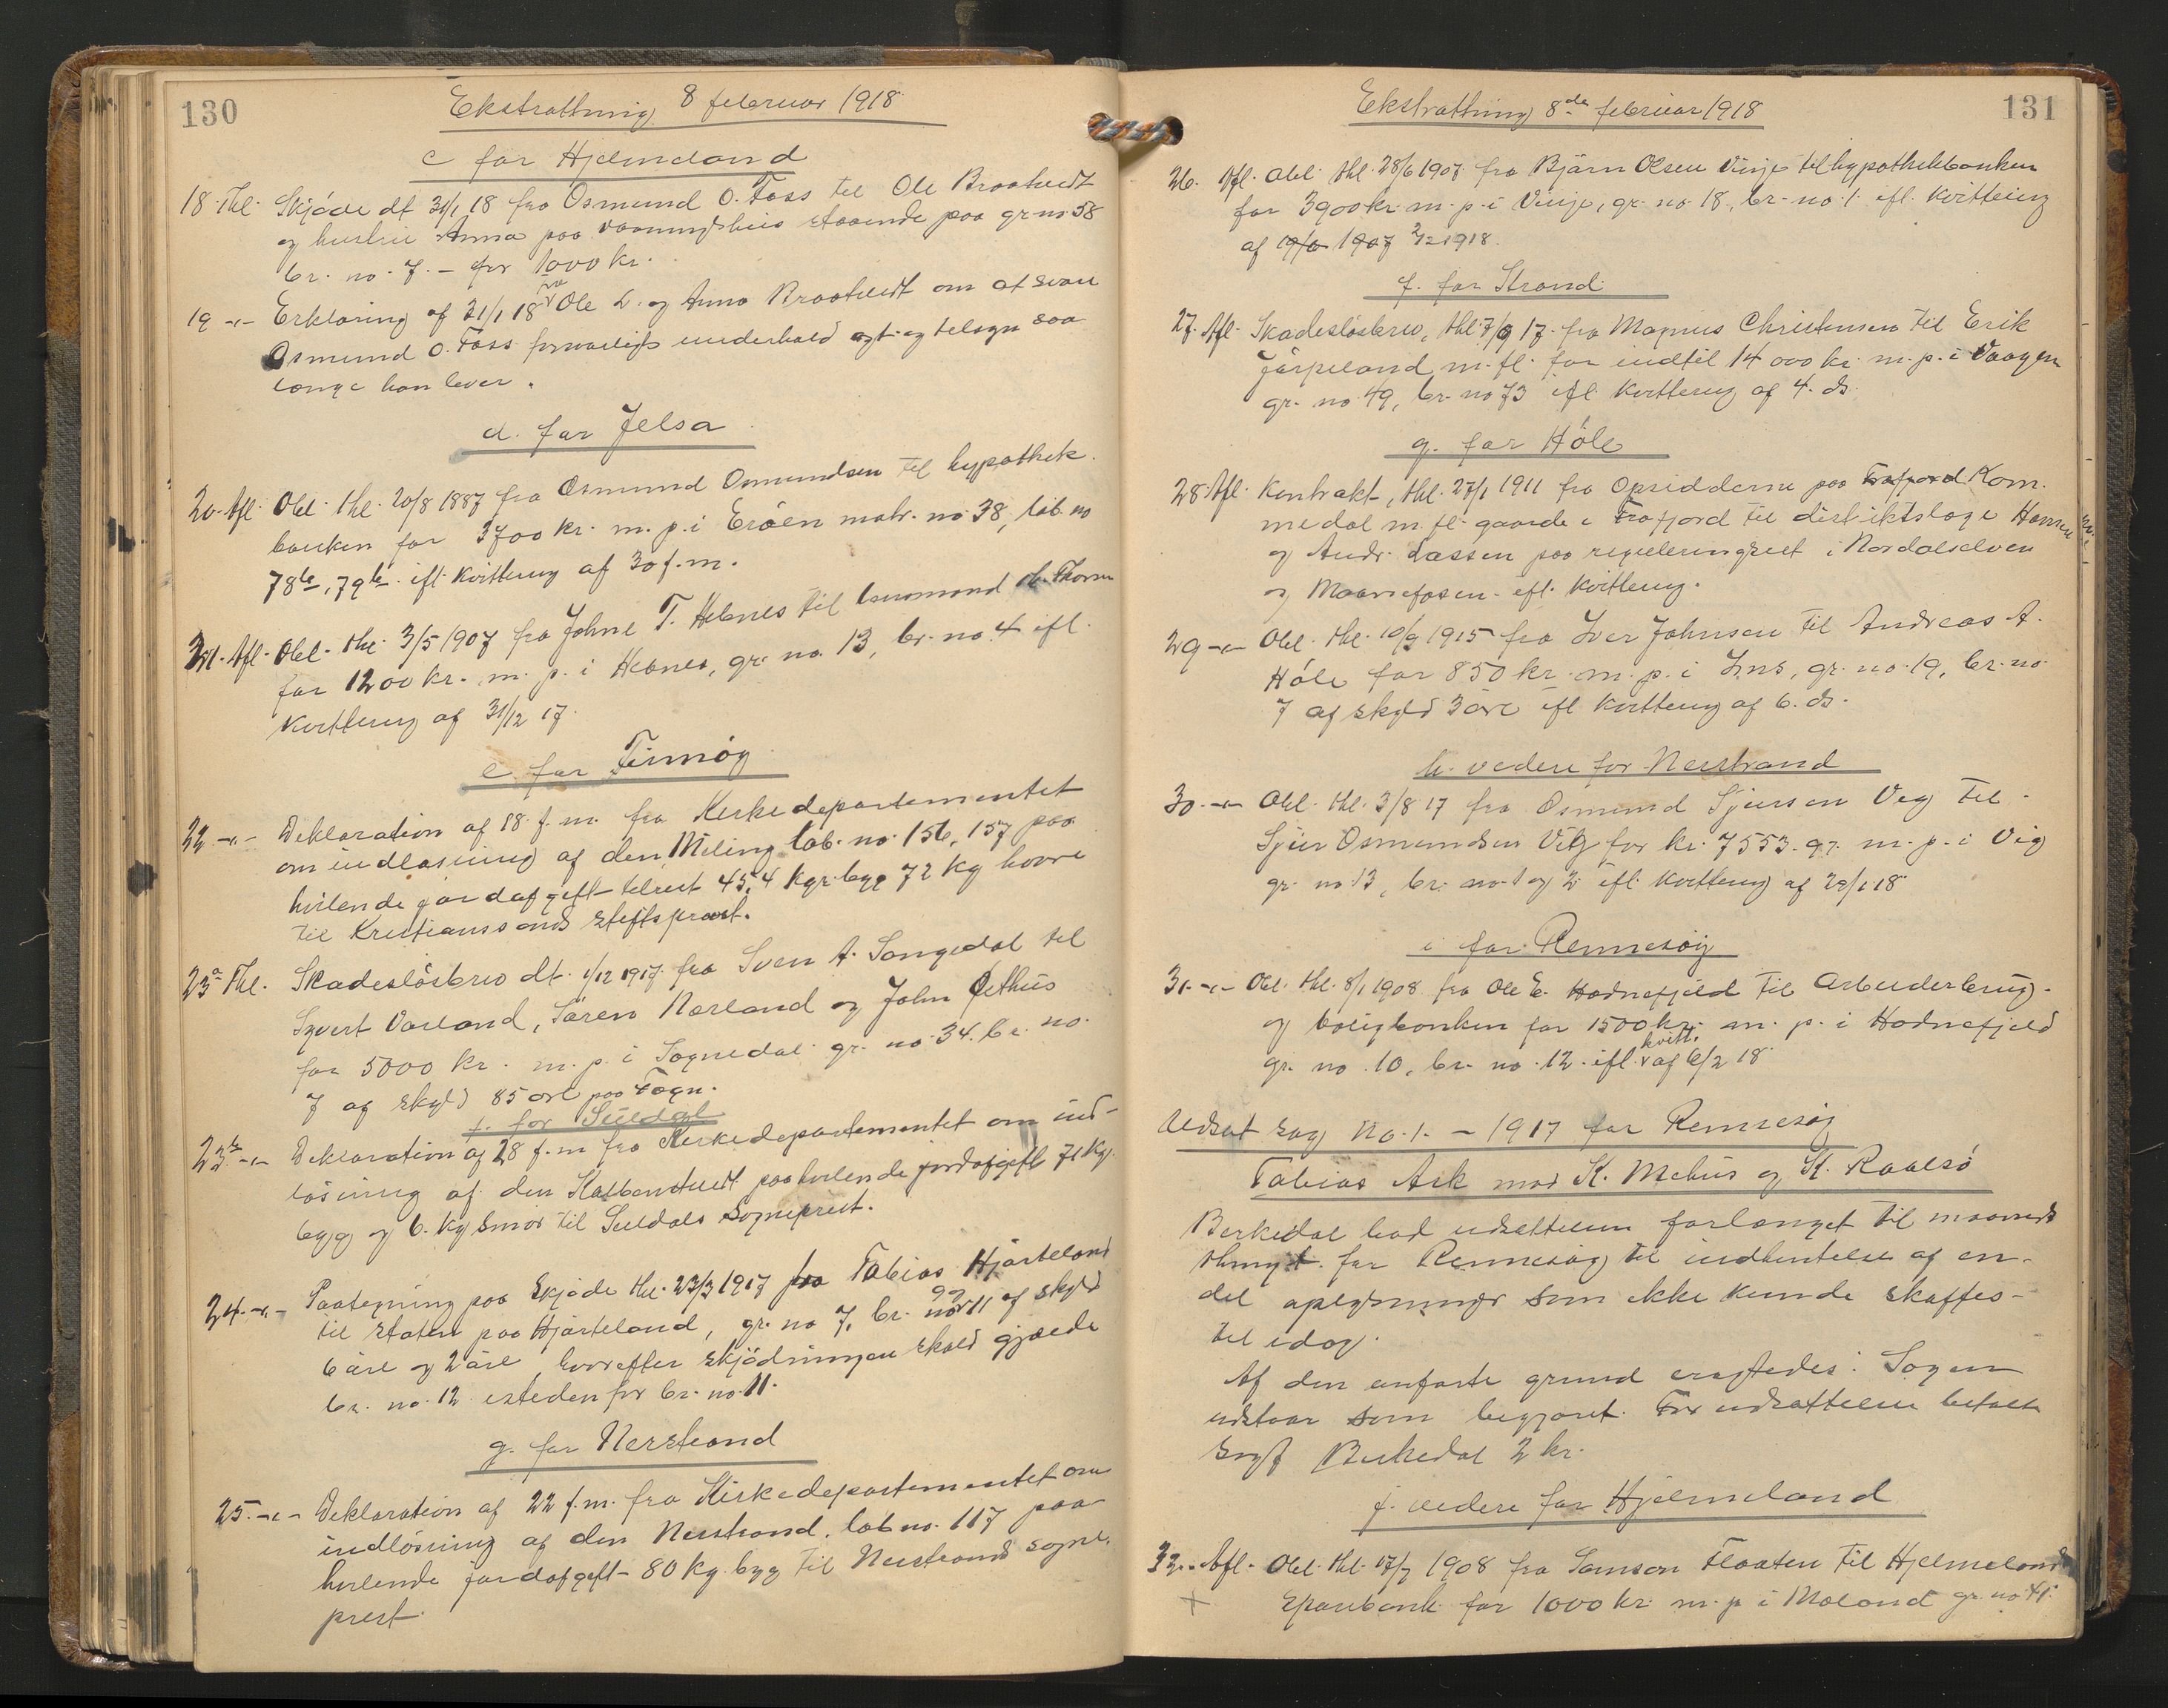 130
Ekstratthing 8 februar 1918
c for Hjelmeland
18. Thl. Skjöde dt 31/1 18 fra Osmund O. Foss til Ole Braatveit
og hustru Anna paa vaaningshus staaende paa gr. no 58
br. no. 7. – for 1000 kr.
19 -"- Erklæring af 21/1 18 fra Ole L. og Anna Braatveit om at svare
Osmund O. Foss forsvarligt underhold agt og tilsyn saa
længe han lever.
d. for Jelsa
20. Afl. Obl. thl. 20/8 1887 fra Osmund Osmundsen til hypothek-
banken for 3700 kr. m. p. i Eröen matr. no 38, lab. no
78b, 79b ifl. kvittering af 30 f. m.
21. Afl. Obl. thl. 3/5 1907 fra Johne T. Hebnes til
for 1200 kr. m. p. i Hebnes, gr. no. 13, br. no. 4 ifl.
kvittering af 31/12 17.
e for Finnöy
22 -"- Deklaration af 18 f. m. fra Kirkedepartementet
om indløsning af den Meling lab. no. 156, 157 paa
hvilende jordafgift tilrest 45,4 kgr. byg 72 kg havre
til Kristianssands stiftsprest.
23a Thl. Skadeslösbrev dt. 1/12 1917 fra Sven A. Sangedal til
Sjvert Varland, Sören Nærland og John Øethus
for 5000 kr. m. p. i Sognedal gr. no 34. br. no.
7 af skyld 85 øre paa Fogn.
f. for Suldal
23b -"- Deklaration af 28 f. m fra Kirkedepartementet om ind-
løsning af den Kalbendtveit paahvilende jordafgift 71 kg.
byg og 6. kg smör til Suldals sogneprest.
24. -"- Paategning paa skjøde thl. 23/3 1917 fra Tobias Hjorteland
til staten paa Hjorteland, gr. no 7, br. no 9 og 11 af skyld
6 øre og 2 øre, hvorefter skjødningen skal gjælde
br. no. 12 isteden for br. no. 11.
g. for Nerstrand
25. -"- Deklaration af 22 f. m. fra Kirkedepartementet om
indlösning af den Nerstrand. lab no. 117 paa-
hvilende jordafgift – 80 kg. byg til Nerstrands sogne-
prest.
Ekstratthing 8de februar 1918
131
26. Afl. Obl. thl. 28/6 1907 fra Björn Olsen Vinje til hypothekbanken
for 3900 kr. m. p. i Vinje, gr. no. 18, br. no. 1. ifl. kvittering
af 19/6 1907 2/2 1918.
f. for Strand
27. Afl. Skadeslösbrev, thl. 7/9 17. fra Magnus Christensen til Erik
Jörpeland m. fl. for indtil 14 000 kr. m. p. i Vaagen
gr. no 49, br. no 73 ifl. kvittering af 4. ds.
g. for Höle
28. Afl. Kontrakt, thl. 27/1 1911 fra opsidderne paa Frafjord Kom-
medal m. fl. gaarde i Frafjord til distriktslæge Hansen
og Andr. Lassen paa reguleringsret i Nordalselven
og Maanefosen – ifl. kvittering.
29 -"- Obl. thl. 10/9 1915 fra Iver Johnsen til Andreas A.
Höle for 850 kr. m. p. i Ims, gr. no. 19, br. no.
7 af skyld 3 øre ifl kvittering af 6. ds.
h. videre for Nerstrand
30. -"- Obl. thl. 3/8 17 fra Osmund Sjursen Veg til
Sjur Osmundsen Vig for kr. 7553.97. m. p. i Vig
gr. no. 13, br. no. 1 og 2 ifl. kvittering af 29/1 18
i for Rennesöy
31. -"- Obl. thl. 8/1 1908 fra Ole E. Hodnefjeld til Arbeiderbrug-
og boligbanken for 1500 kr. m. p. i Hodnefjeld
gr. no. 10, br. no. 12. ifl. kvitt. af 6/2 18
Udsat sag No. 1. – 1917 for Rennesöy
Tobias Ask mod K. Mehus og K. Raalsö
Berkedal bad udsættelsen forlænget til maaneds
thinget for Rennesøy til indhentelse af en-
del oplysninger som ikke kunde skaffes
til idag.
Af den anførte grund eragtedes: Sagen
udstaar som begjæret. For udsættelsen betalte
Sagf. Berkedal 2 kr.
j. videre for Hjelmeland
32. Afl. Obl. thl. 17/7 1908 fra Samson Flaaten til Hjelmelands
× Sparebank for 1000 kr. m. p. i Møland gr. no 41.